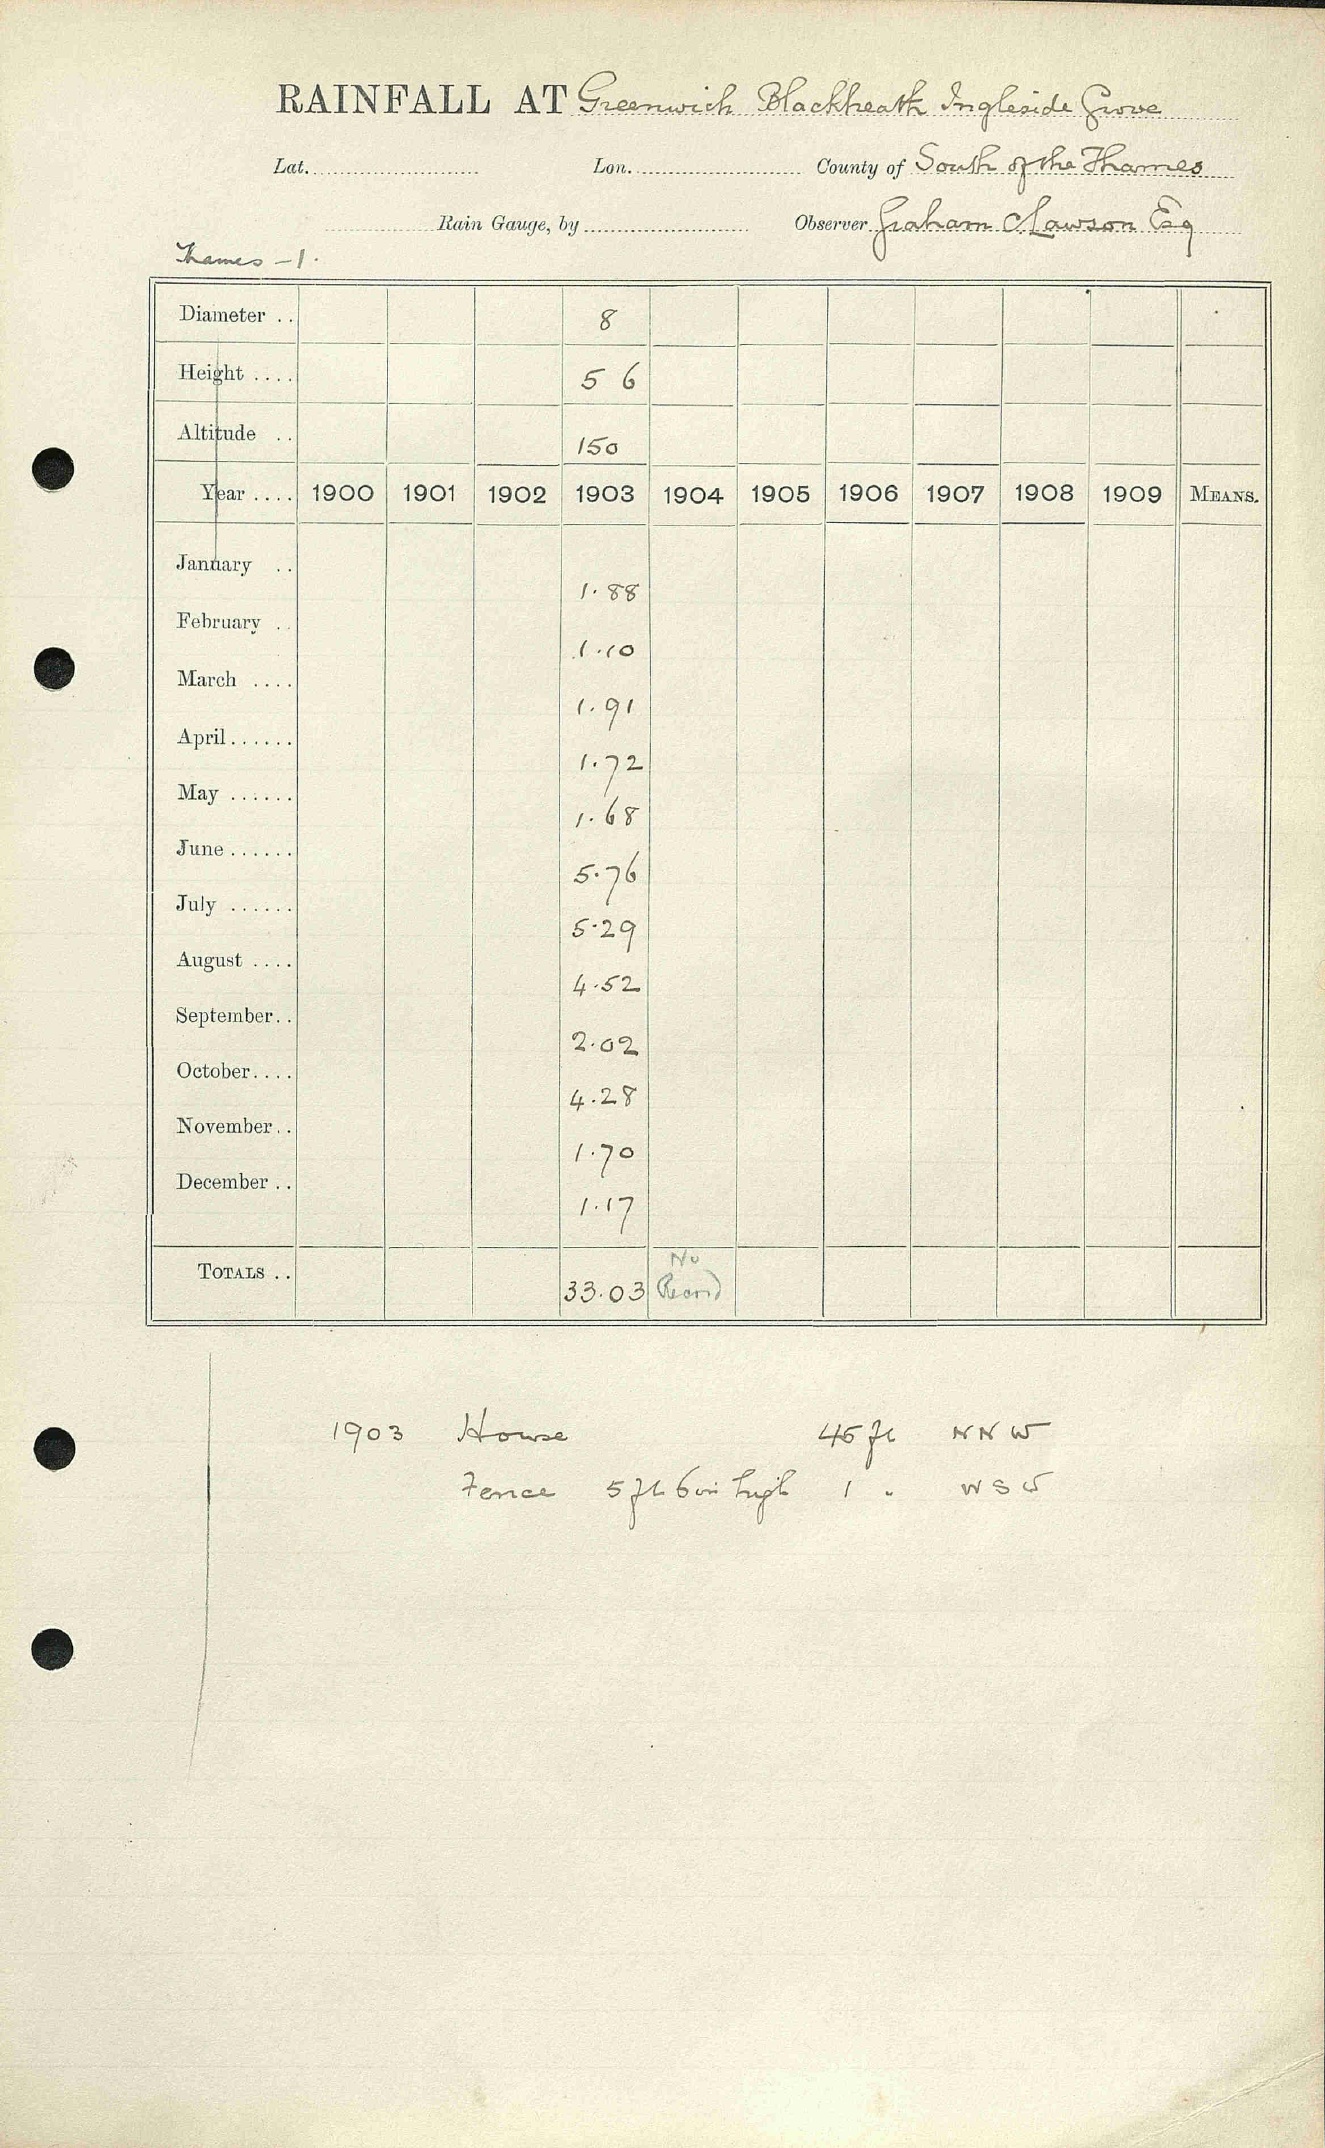 RAINFALL AT Greenwich Blackheath Ingleside Grove
Lat. Lon. County of South of the Thames
Rain Gauge, by Observer Graham C Lawson Esq
Thames - 1.
Diameter .. 8
Height .... 5 6
Altitude .. 150
Year .... 1900 1901 1902 1903 1904 1905 1906 1907 1908 1909 MEANS.
January .. 1.88
February .. 1.10
March .... 1.91
April ...... 1.72
May ...... 1.68
June ...... 5.76
July ...... 5.29
August .... 4.52
September .. 2.02
October .... 4.28
November .. 1.70
December .. 1.17
TOTALS .. 33.03 No Record
1903 House 45 ft NNW
Fence 5 ft 6 in high 1 " WSW